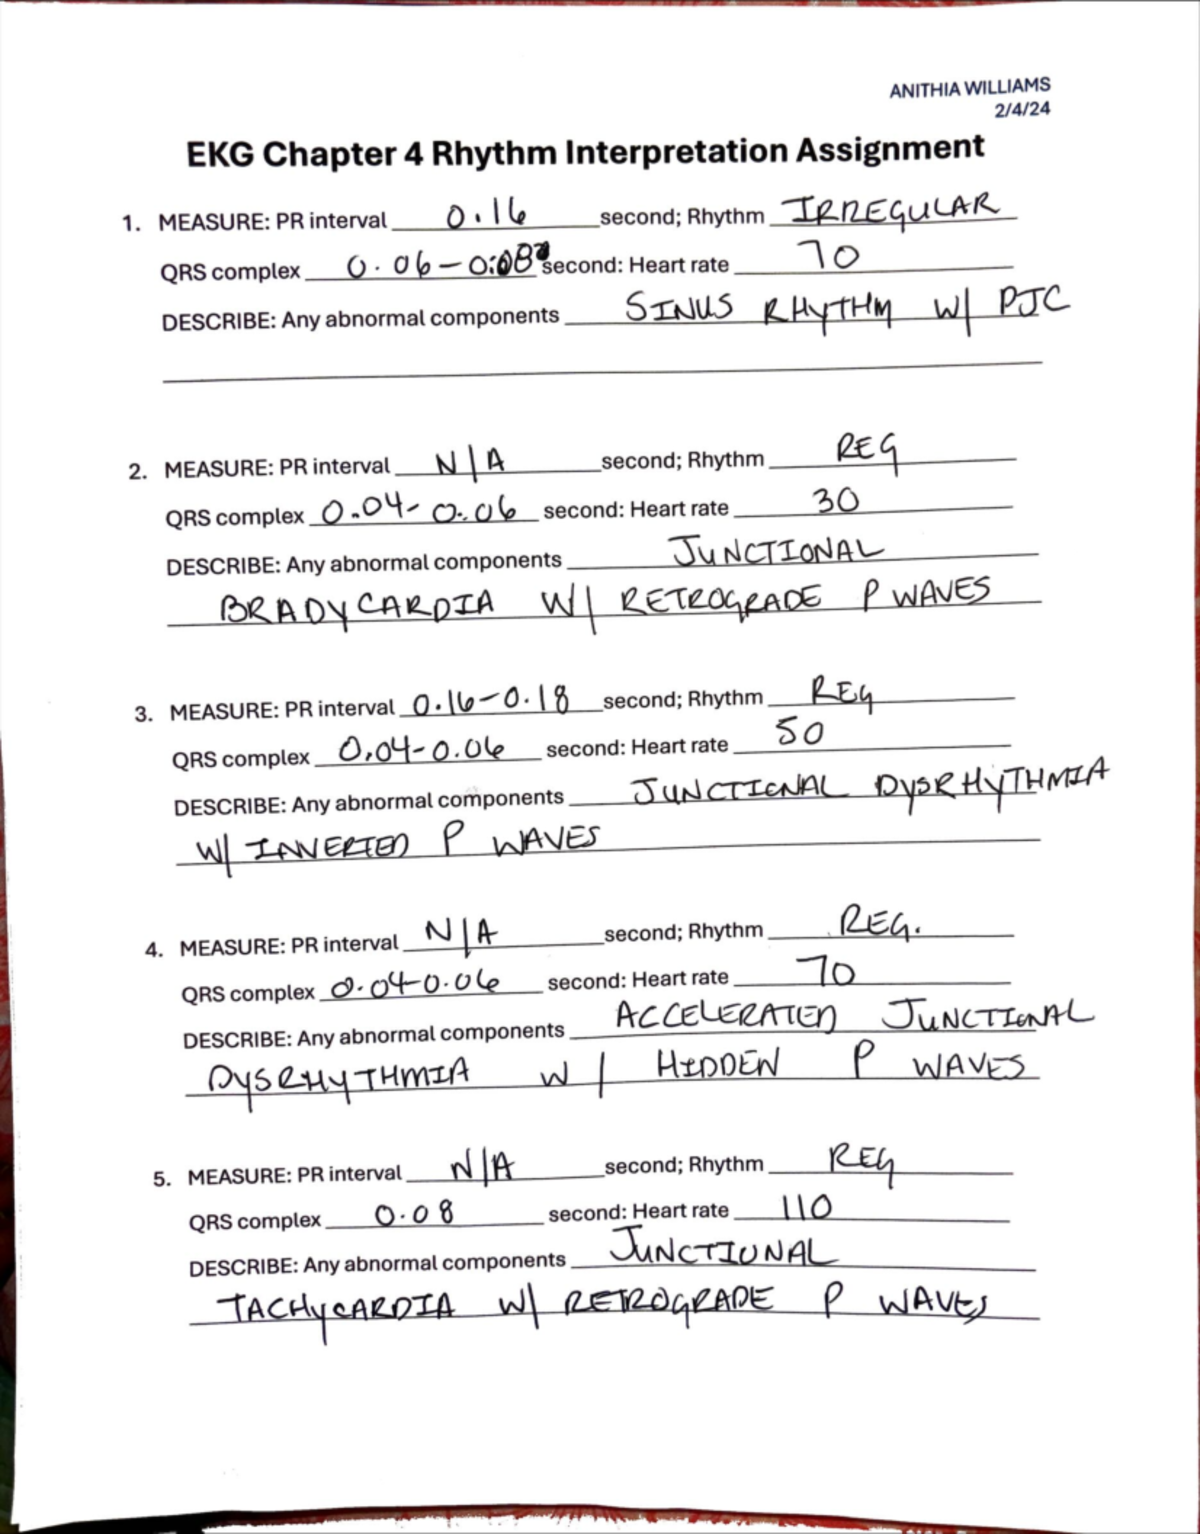 ANITHIA WILLIAMS
2/4/24
EKG Chapter 4 Rhythm Interpretation Assignment
1. MEASURE: PR interval 0.16 second; Rhythm IRREGULAR
QRS complex 0.06-0.08 second: Heart rate 70
DESCRIBE: Any abnormal components SINUS RHYTHM W/ PJC
2. MEASURE: PR interval N/A second; Rhythm REG
QRS complex 0.04-0.06 second: Heart rate 30
DESCRIBE: Any abnormal components JUNCTIONAL
BRADYCARDIA W/ RETROGRADE P WAVES
3. MEASURE: PR interval 0.16-0.18 second; Rhythm REG
QRS complex 0.04-0.06 second: Heart rate 50
DESCRIBE: Any abnormal components JUNCTIONAL DYSRHYTHMIA
W/ INVERTED P WAVES
4. MEASURE: PR interval N/A second; Rhythm REG.
QRS complex 0.04-0.06 second: Heart rate 70
DESCRIBE: Any abnormal components ACCELERATED JUNCTIONAL
DYSRHYTHMIA W/ HIDDEN P WAVES
5. MEASURE: PR interval N/A second; Rhythm REG
QRS complex 0.08 second: Heart rate 110
DESCRIBE: Any abnormal components JUNCTIONAL
TACHYCARDIA W/ RETROGRADE P WAVES